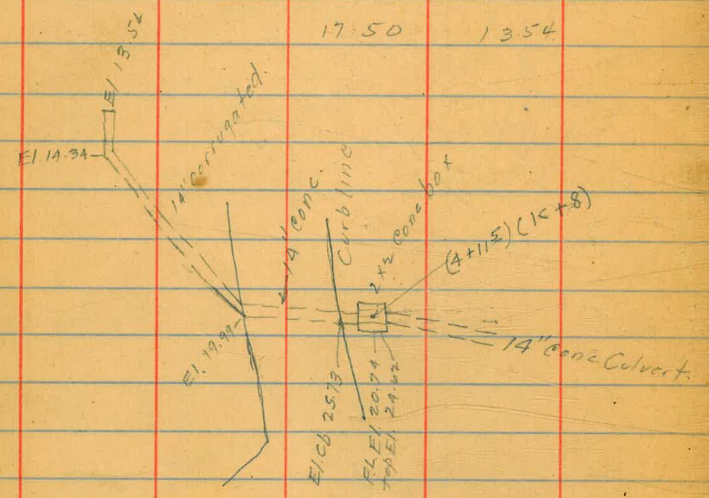 17.50 13.54
El. 13.54
El. 19.34
14" corrugated.
14" conc.
Curb line
2 x 2 Conc box
(4+115) (K+8)
14" Conc Culvert.
El. 19.99
El. Cb 25.73
F.L. El. 20.94
top El. 24.62